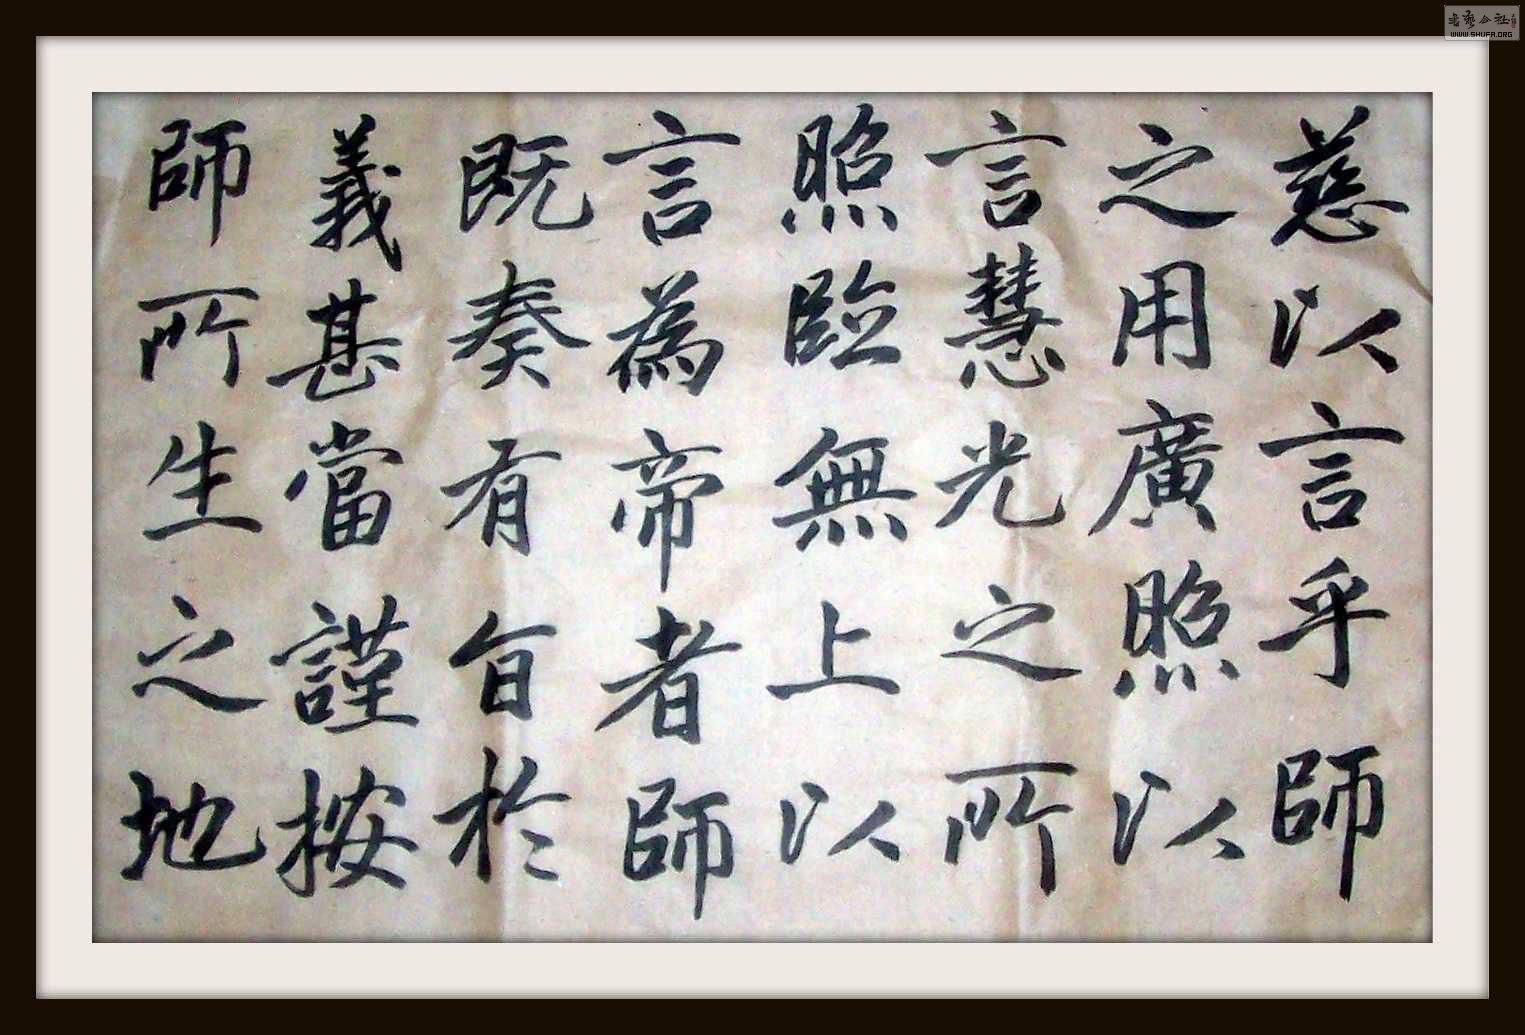 慈以言乎師
之用廣照以
言慧光之所
照臨無上以
言為帝者師
既奏有旨於
義甚當謹按
師所生之地
書藝公社
WWW.SHUFA.ORG